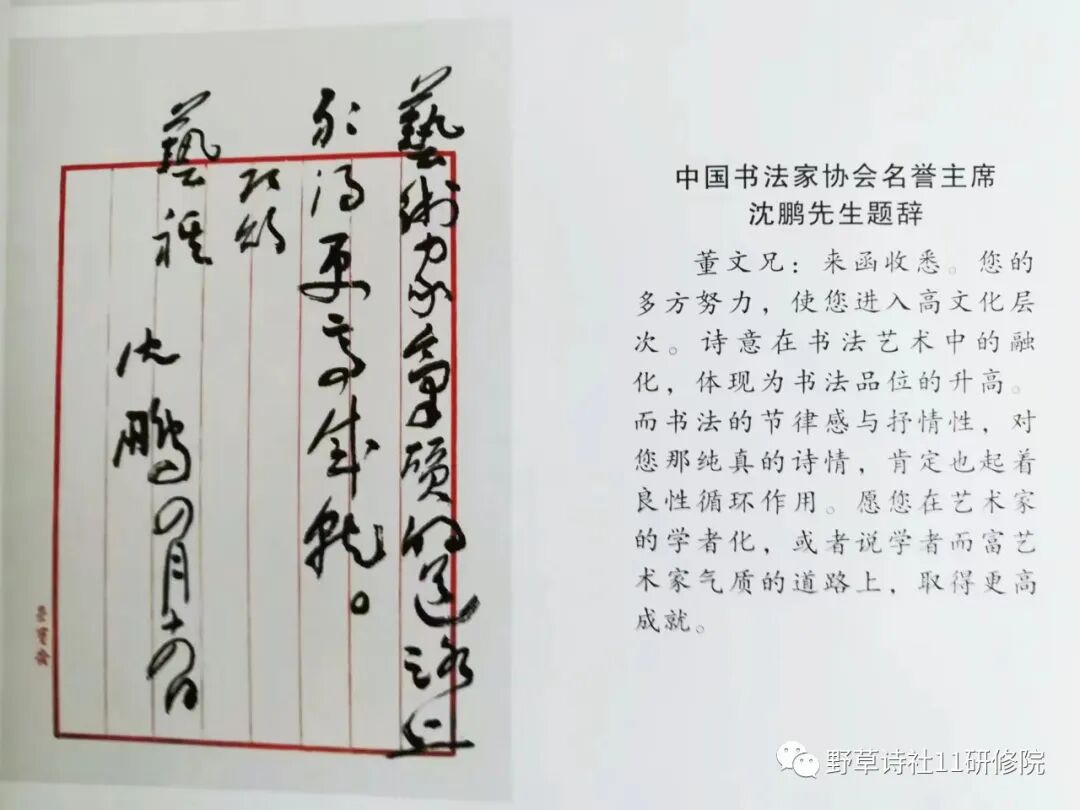 藝術家氣质的道路上
取得更高成就。
此頌
藝祺
沈鵬四月十四日
榮寶齋
中国书法家协会名誉主席
沈鹏先生题辞
董文兄：来函收悉。您的
多方努力，使您进入高文化层
次。诗意在书法艺术中的融
化，体现为书法品位的升高。
而书法的节律感与抒情性，对
您那纯真的诗情，肯定也起着
良性循环作用。愿您在艺术家
的学者化，或者说学者而富艺
术家气质的道路上，取得更高
成就。
野草诗社11研修院